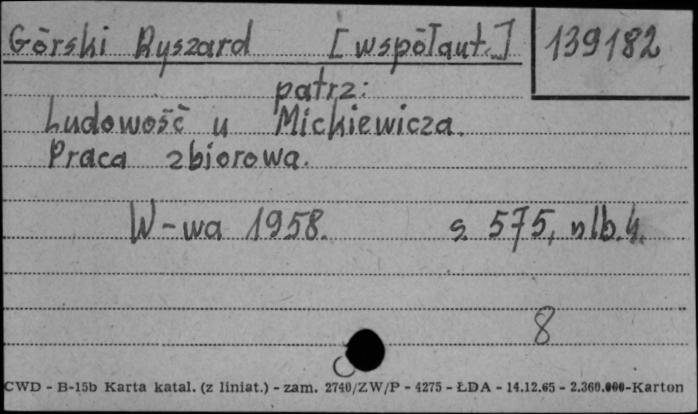 Górski Ryszard [współaut.] 139182
patrz:
Ludowość u Mickiewicza.
Praca zbiorowa.
W-wa 1958. s. 575, nlb. 4.
8
CWD - B-15b Karta katal. (z liniat.) - zam. 2740/ZW/P - 4275 - ŁDA - 14.12.65 - 2.360.000-Karton